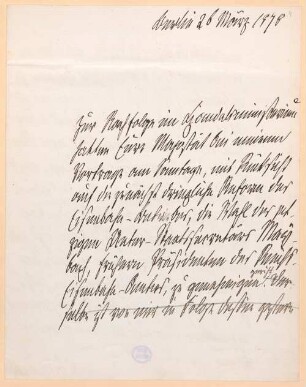 Berlin 26 März 1878
Zur Nachfolge im Handelsministerium
hatten Eure Majestät bei meinem
Vortrage am Sonntage, mit Rücksicht
auf die zunächst dringliche Reform des
Eisenbahn-Wesens, die Wahl des jet-
zigen Unter-Staatssecretärs May-
bach, frühern Präsidenten des Reichs-
Eisenbahn-Amtes, zu genehmigen geruht. Der-
selbe ist von mir in Folge dessen